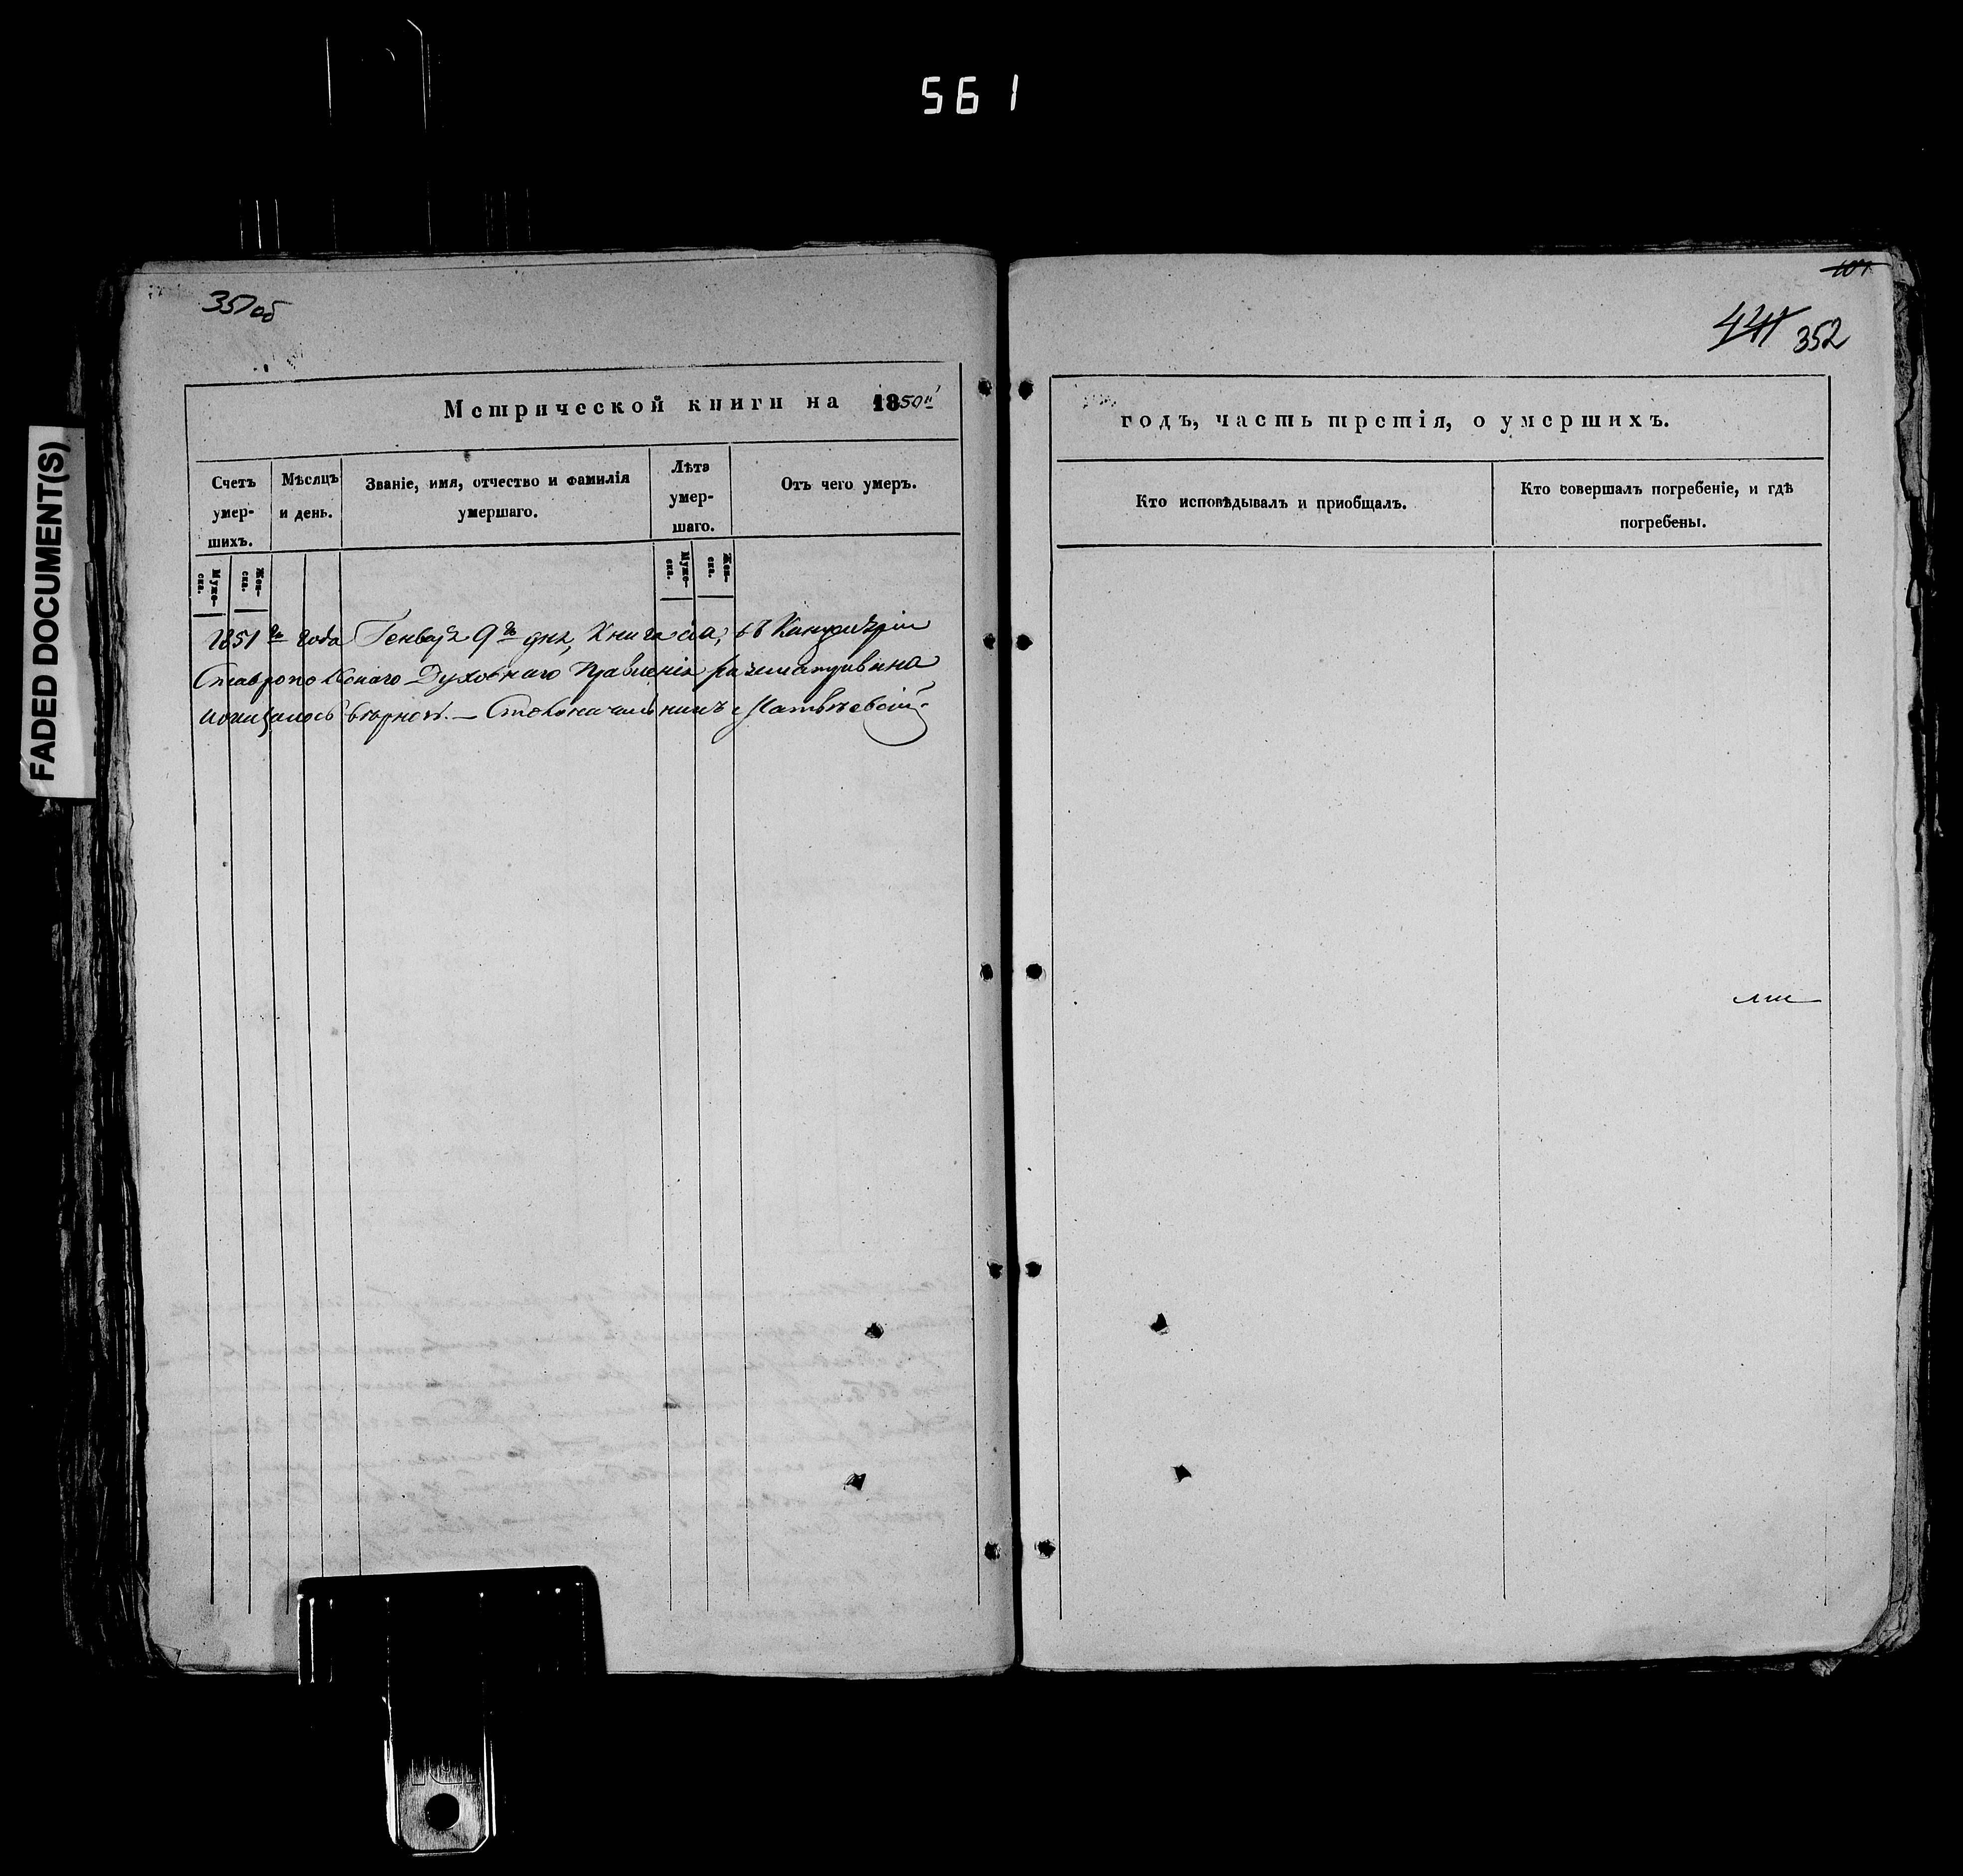 561
FADED DOCUMENT(S)
351об
Метрической книги на 1850й
Счетъ умер-шихъ.
Мѣсяцъ и день.
Званіе, имя, отчество и фамилія умершаго.
Лѣта умер-шаго.
Отъ чего умеръ.
Муже-ска.
Жен-ска.
Муже-ска.
Жен-ска.
1851го года Генваря 9го дня, Книга сія, въ Канцеляріи
Ставропольскаго Духовнаго Правленія разсматривана
и оказалось вѣрною. — Столоначальникъ Матвѣевскій
104
441 352
годъ, часть третія, о умершихъ.
Кто исповѣдывалъ и пріобщалъ.
Кто совершалъ погребеніе, и гдѣ погребены.